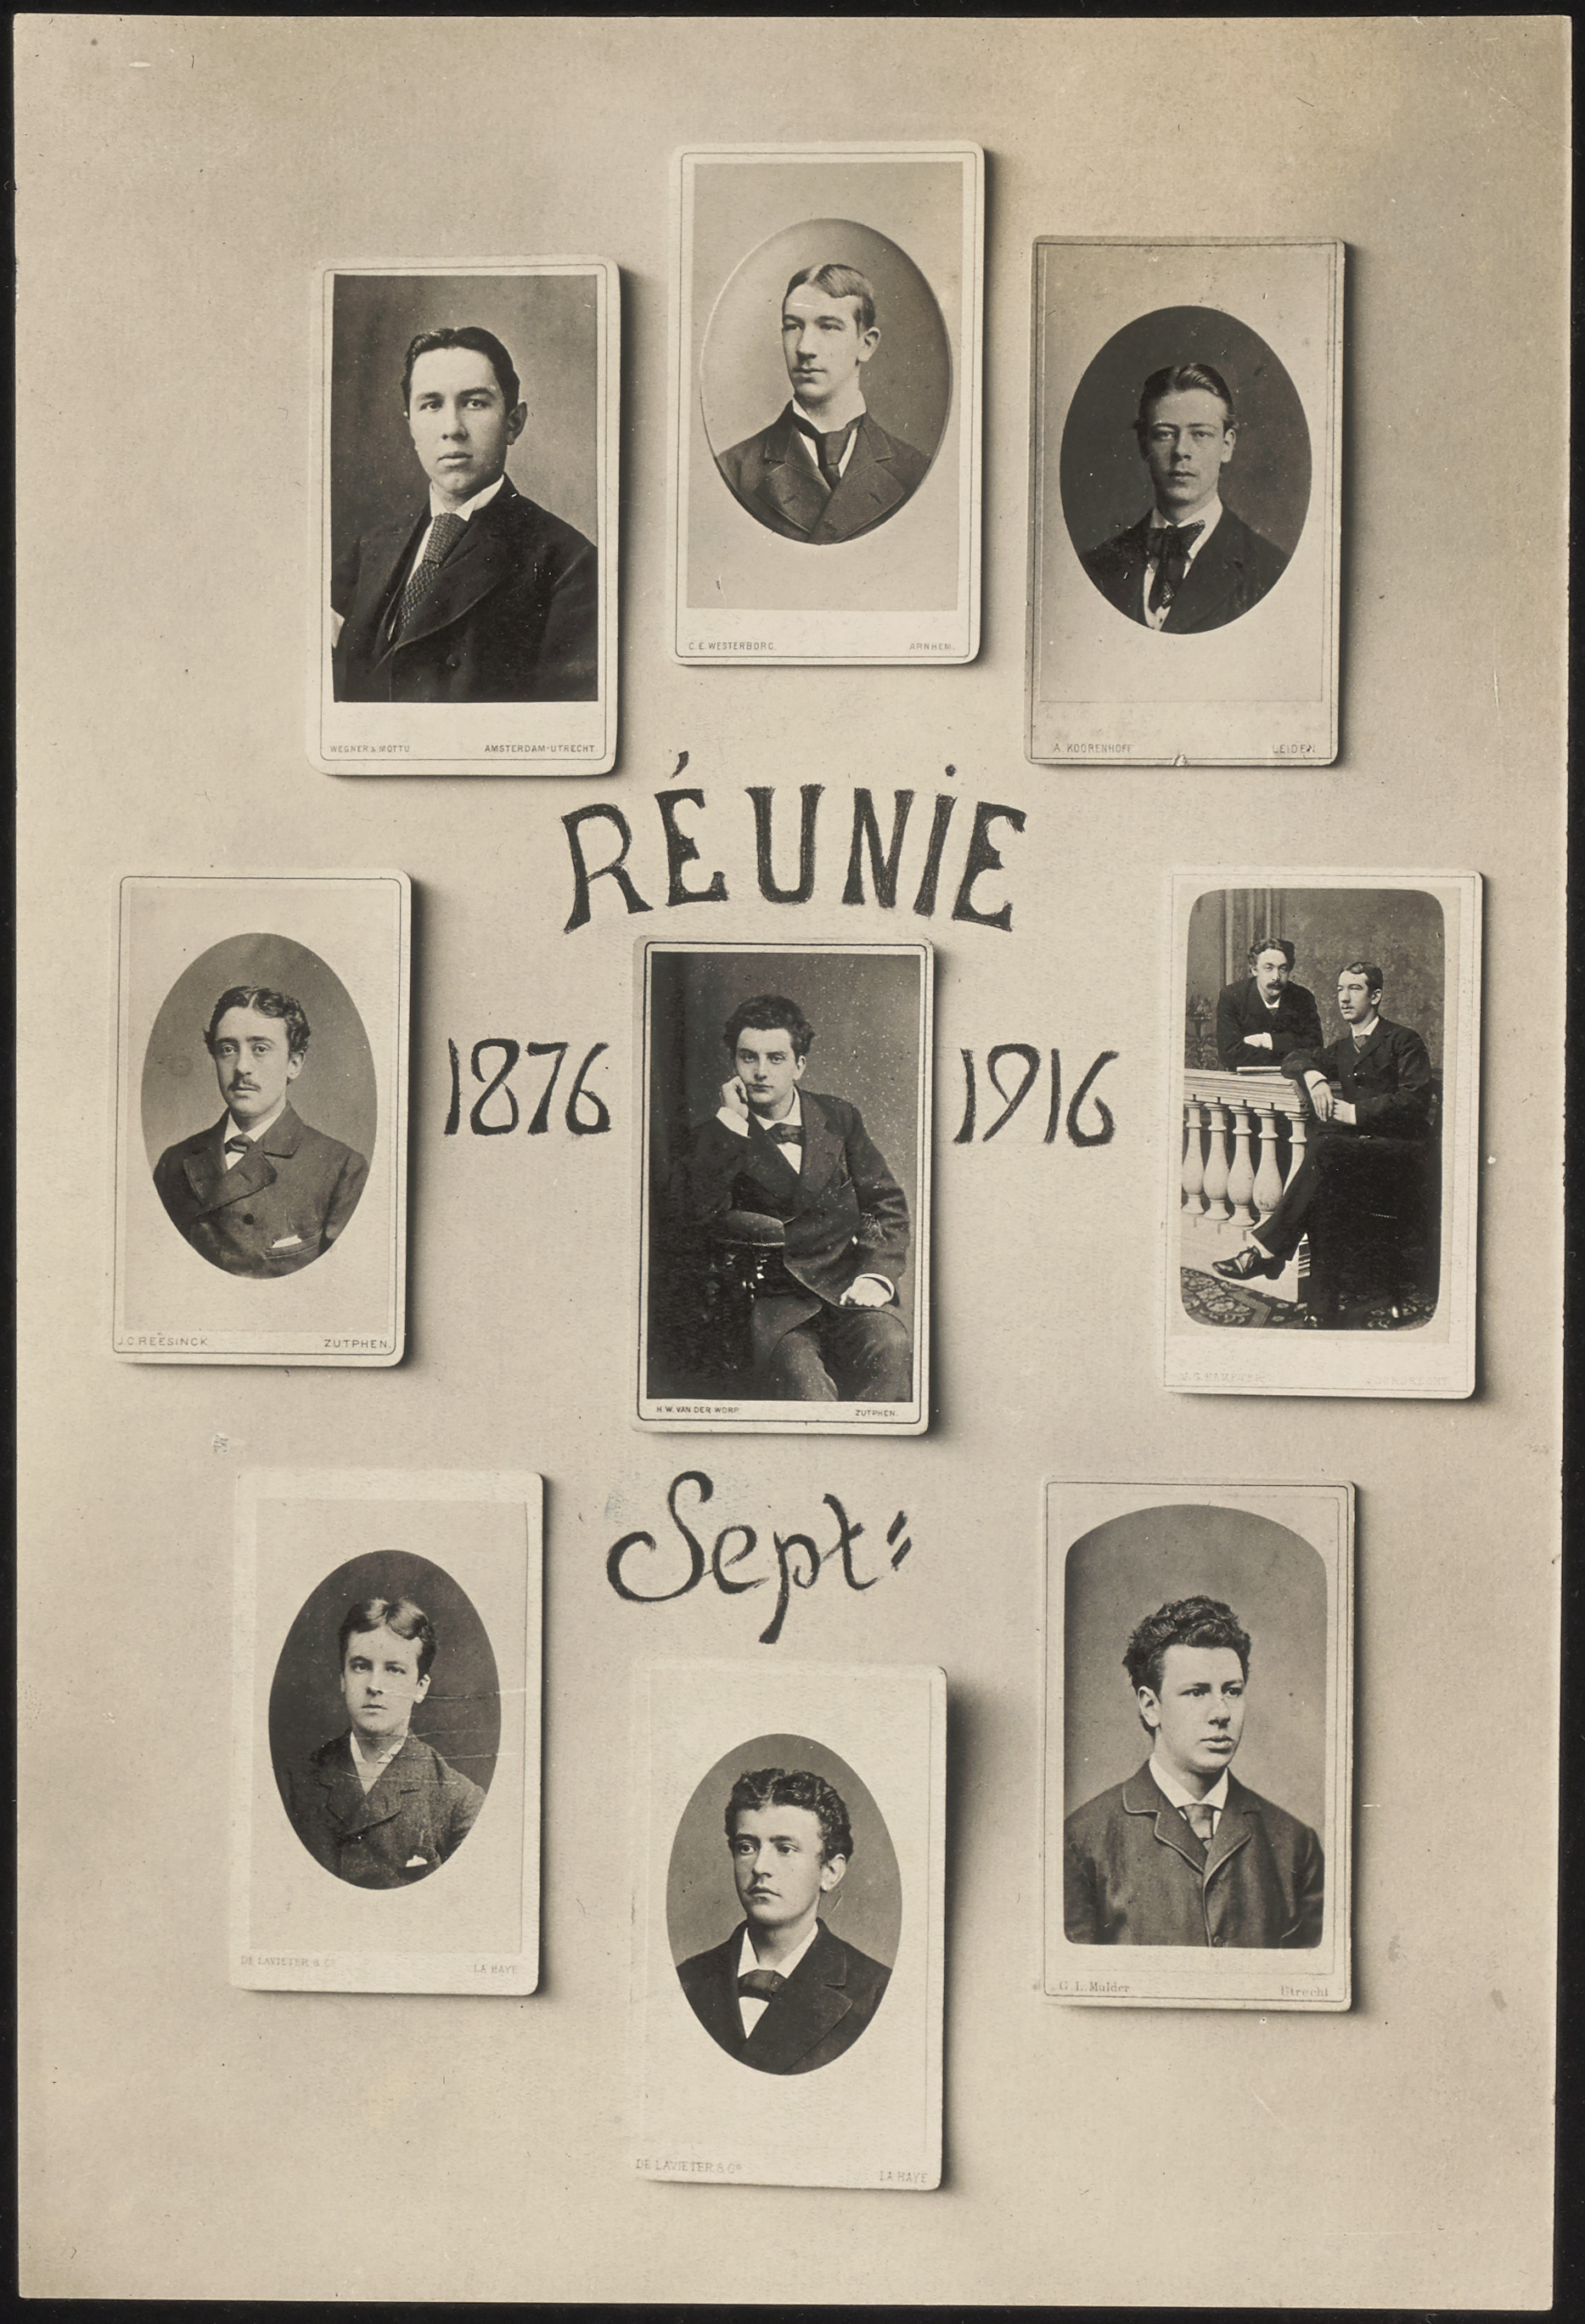 C. E. WESTERBORG. ARNHEM.
WEGNER & MOTTU AMSTERDAM-UTRECHT.
A. KOORENHOFF LEIDEN.
RÉUNIE
1876 1916
J. C. REESINCK ZUTPHEN.
H. W. VAN DER WORP. ZUTPHEN.
Sept=
DE LAVIETER & Co LA HAYE
G. L. Mulder Utrecht
DE LAVIETER & Co LA HAYE